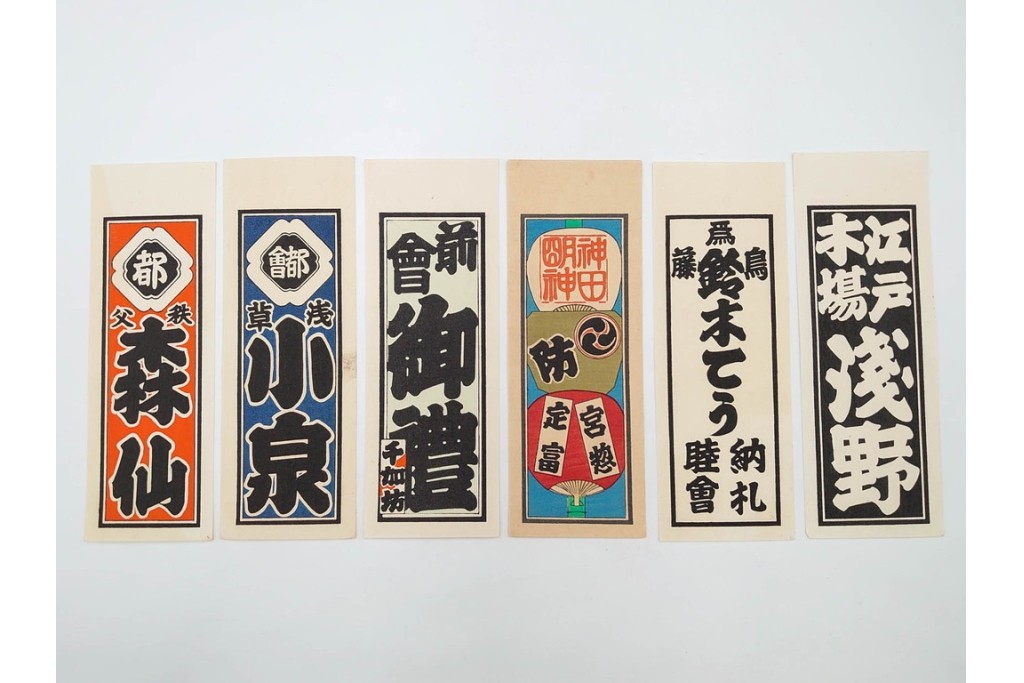 都
秩父
森仙
都會
浅草
小泉
前會
御禮
千加坊
神田
明神
宮惣
定富
爲
鳥藤
鈴木てう
納札
睦會
江戸
木場
浅野